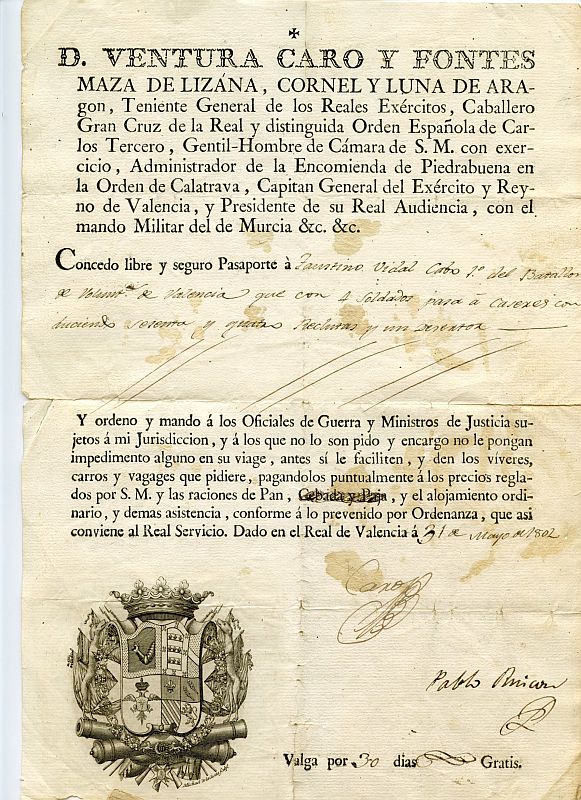 D. VENTURA CARO Y FONTES
MAZA DE LIZÁNA, CORNEL Y LUNA DE ARA-
gon, Teniente General de los Reales Exércitos, Caballero
Gran Cruz de la Real y distinguida Orden Española de Car-
los Tercero, Gentil-Hombre de Cámara de S. M. con exer-
cicio, Administrador de la Encomienda de Piedrabuena en
la Orden de Calatrava, Capitan General del Exército y Rey-
no de Valencia, y Presidente de su Real Audiencia, con el
mando Militar del de Murcia &c. &c.
Concedo libre y seguro Pasaporte à Faustino Vidal Cabo 1.º del Batallon
de Volunt.s de Valencia que con 4 Soldados pasa à Caseres con
duciendo sesenta y quatro Reclutas y un desertor
Y ordeno y mando á los Oficiales de Guerra y Ministros de Justicia su-
jetos á mi Jurisdiccion, y á los que no lo son pido y encargo no le pongan
impedimento alguno en su viage, antes sí le faciliten, y den los víveres,
carros y vagages que pidiere, pagandolos puntualmente á los precios regla-
dos por S. M. y las raciones de Pan, Cebada y Paja, y el alojamiento ordi-
nario, y demas asistencia, conforme á lo prevenido por Ordenanza, que asi
conviene al Real Servicio. Dado en el Real de Valencia á 31 de Mayo de 1802
Caro
Pablo
Valga por 30 dias Gratis.